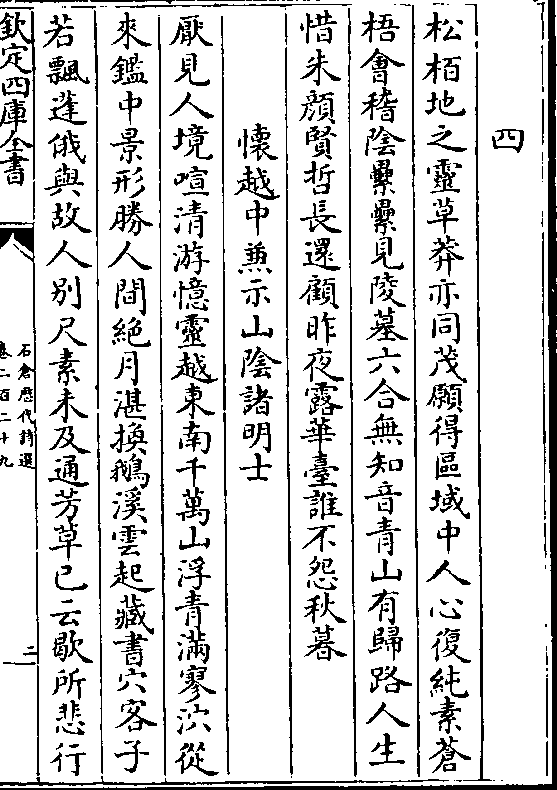 四
松栢地之靈草莽亦同茂願得區域中人心復純素蒼
梧會稽陰纍纍見陵墓六合無知音青山有歸路人生
惜朱顔賢哲長還顧昨夜露華臺誰不怨秋暮
懷越中兼示山陰諸明士
厭見人境喧清游憶靈越東南千萬山浮青滿寥泬從
來鑑中景形勝人間絶月湛換鵝溪雲起藏書穴客子
若飄蓬俄與故人別尺素未及通芳草已云歇所悲行
欽定四庫全書
石倉歷代詩選
卷二百二十九
二